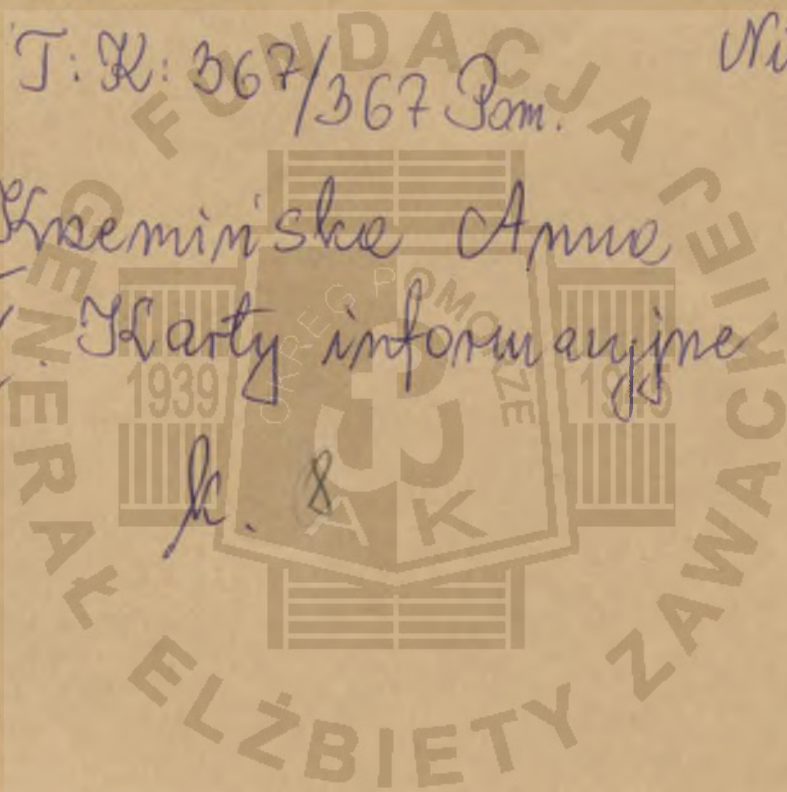 T: K: 367/367 Pom.
Krzemińska Anna
. Karty informacyjne
k. 8
FUNDACJA GENERAŁ ELŻBIETY ZAWACKIEJ
OKRĘG POMORZE
1939
AK